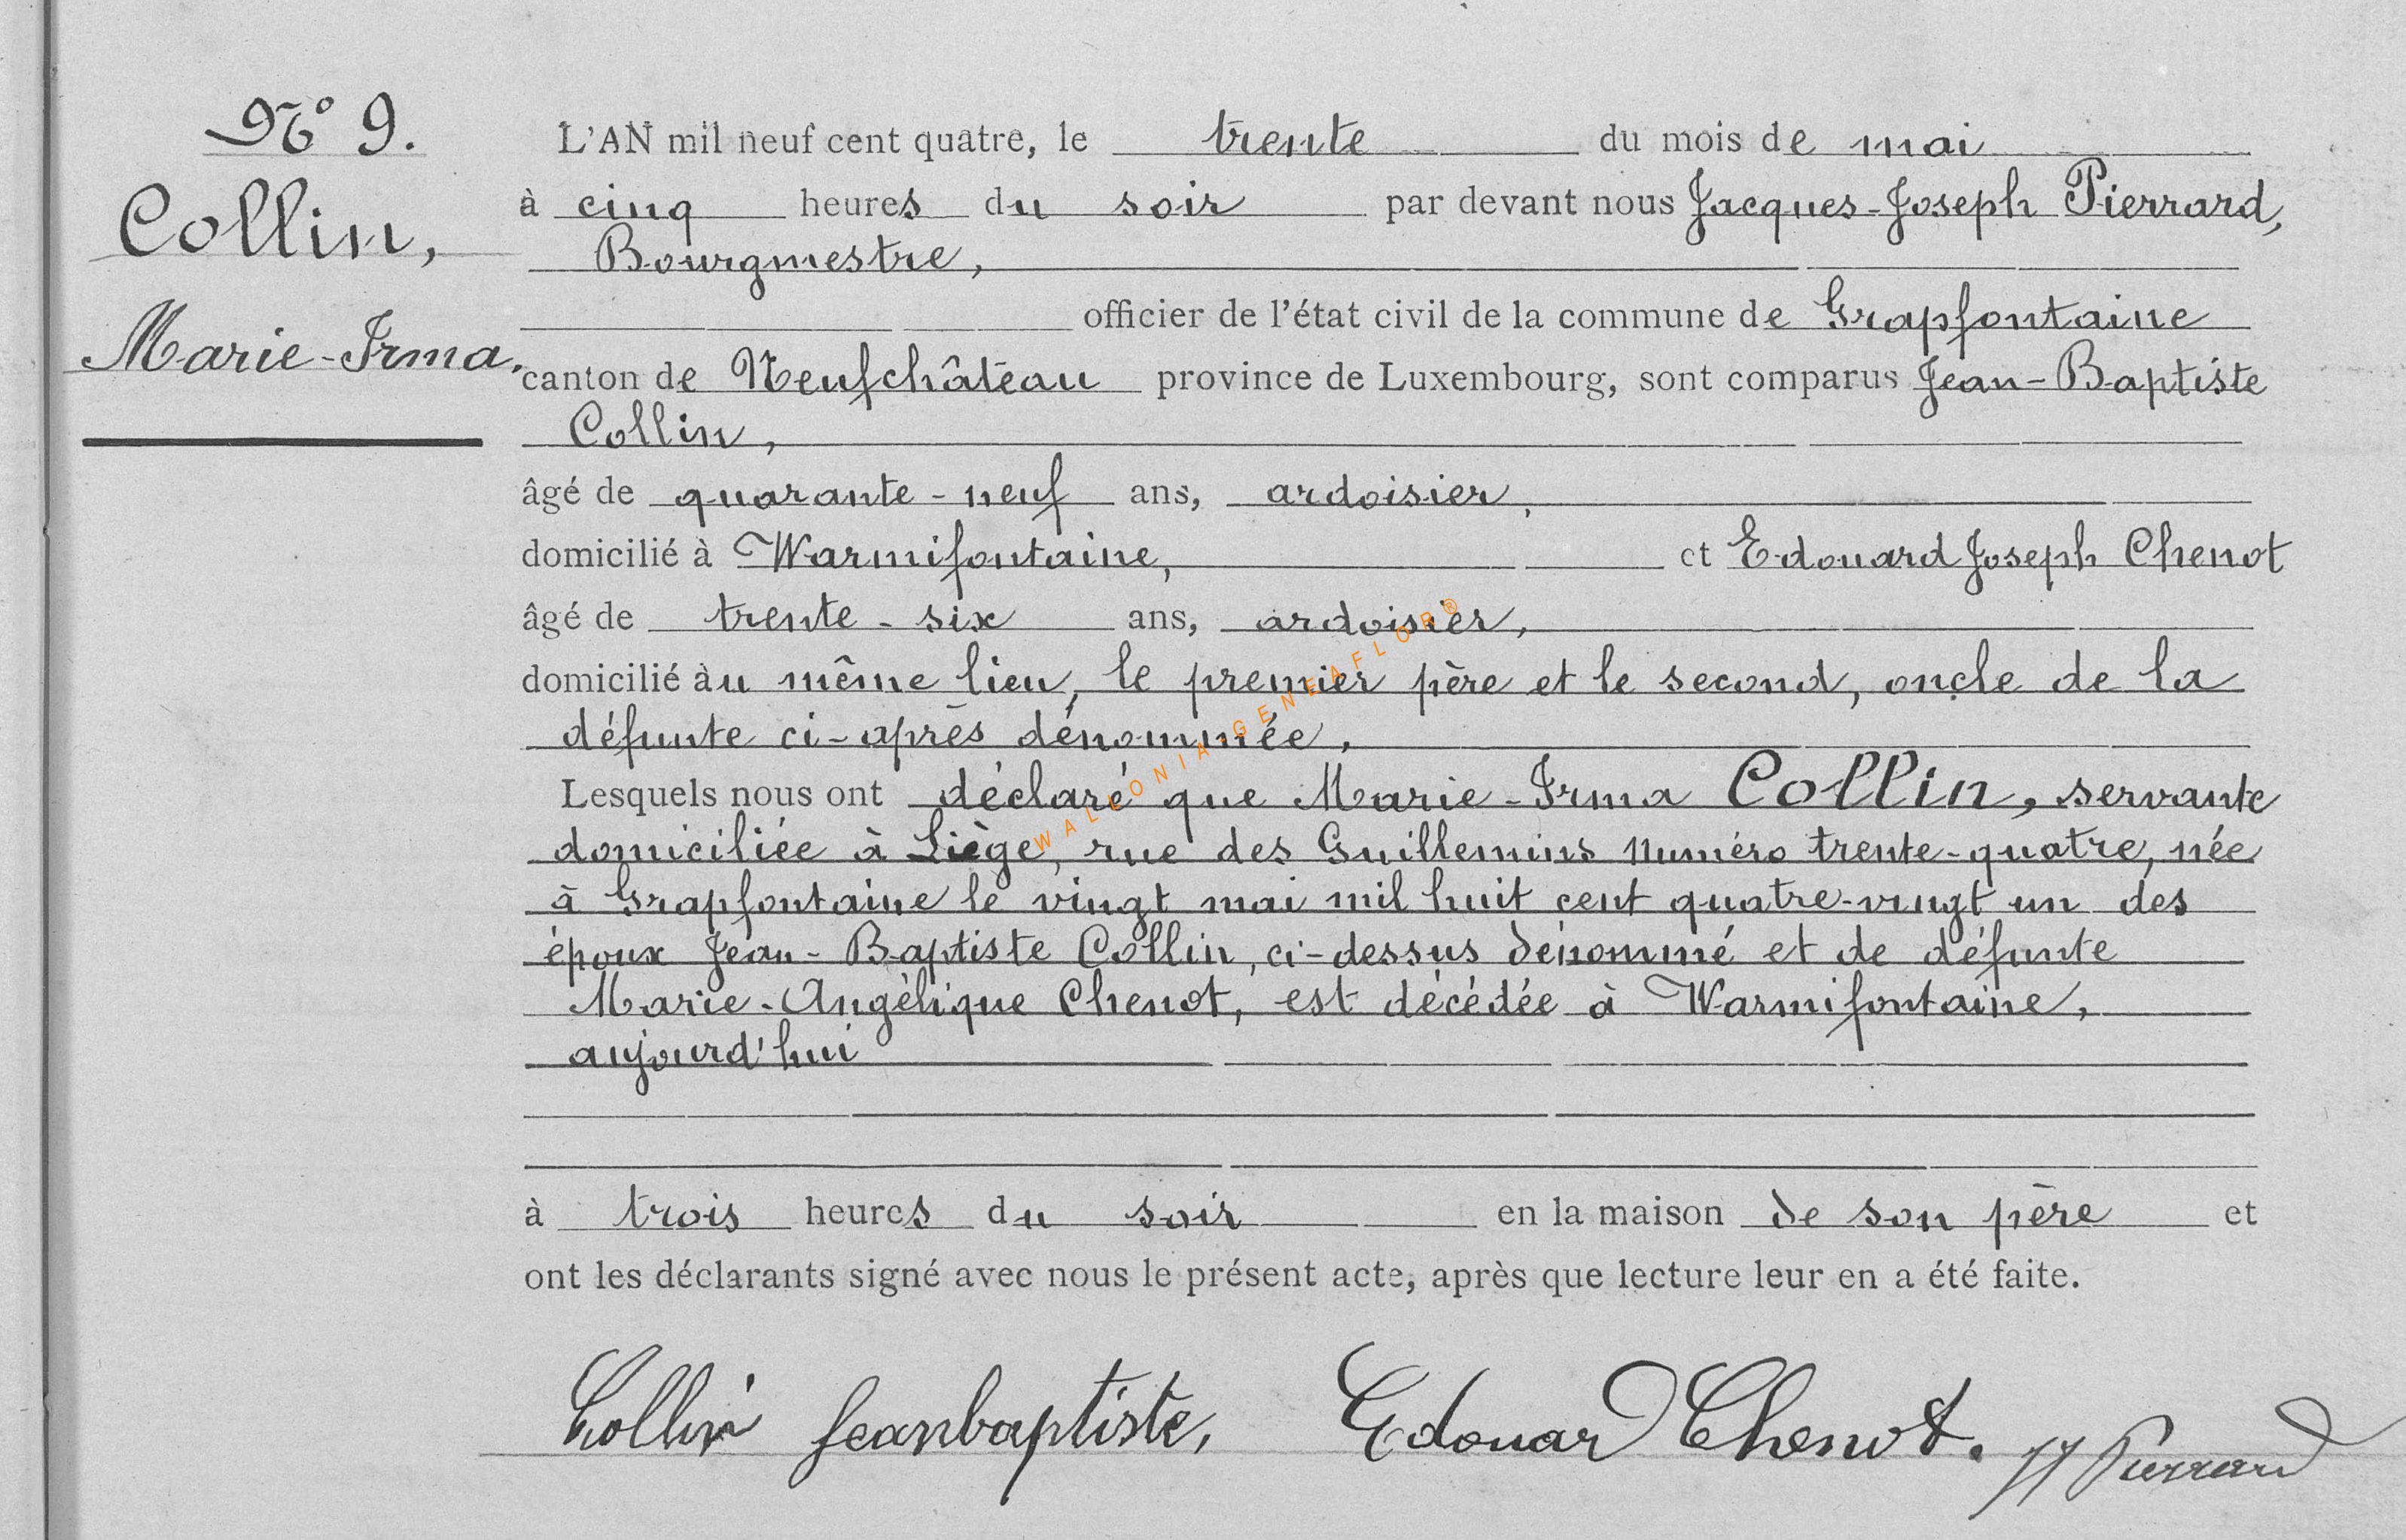 N° 9.
Collin,
Marie-Irma.
L'AN mil neuf cent quatre, le trente du mois de mai
à cinq heures du soir par devant nous Jacques-Joseph Pierrard,
Bourgmestre,
officier de l'état civil de la commune de Grapfontaine
canton de Neufchâteau province de Luxembourg, sont comparus Jean-Baptiste
Collin,
âgé de quarante-neuf ans, ardoisier,
domicilié à Warmifontaine, et Edouard Joseph Chenot
âgé de trente-six ans, ardoisier,
domicilié àu même lieu, le premier père et le second, oncle de la
défunte ci-après dénommée,
Lesquels nous ont déclaré que Marie-Irma Collin, servante
domiciliée à Liège, rue des Guillemins numéro trente-quatre, née
à Grapfontaine le vingt mai mil huit cent quatre-vingt un des
époux Jean-Baptiste Collin, ci-dessus dénommé et de défunte
Marie-Angélique Chenot, est décédée à Warmifontaine,
aujourd'hui
à trois heures du soir en la maison de son père et
ont les déclarants signé avec nous le présent acte, après que lecture leur en a été faite.
Collin jeanbaptiste, Edouard Chenot. JJ Pierrard
WALLONIA-GENEAFLOR®